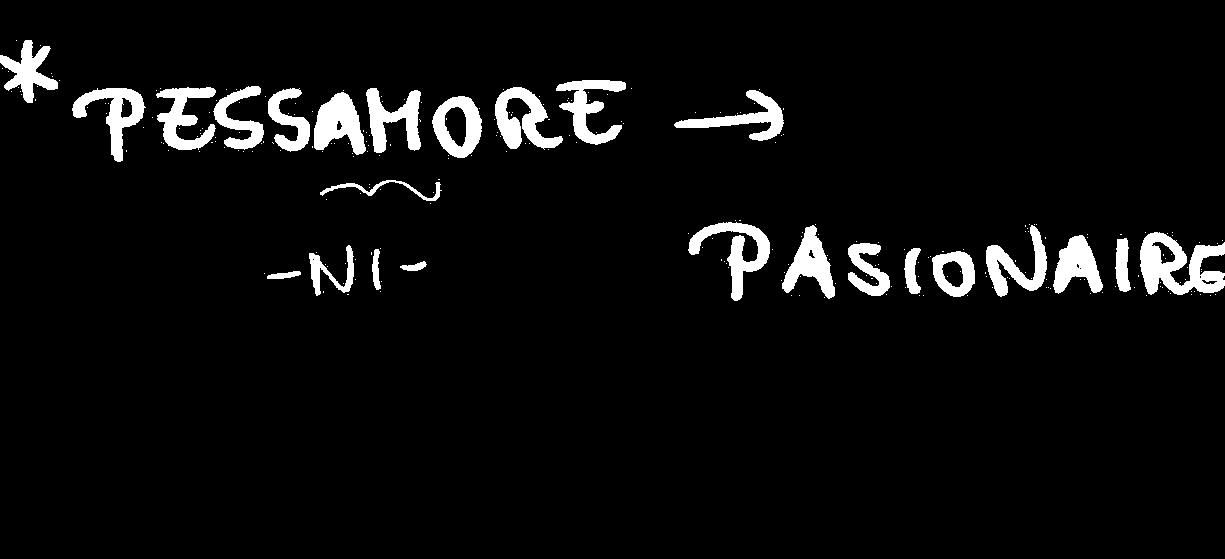 *PESSAMORE →
-NI-
PASIONAIRE